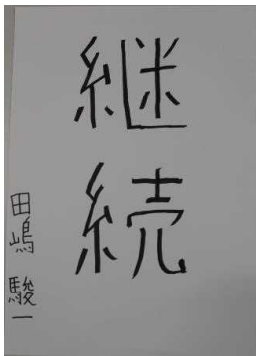 継続
田嶋駿一